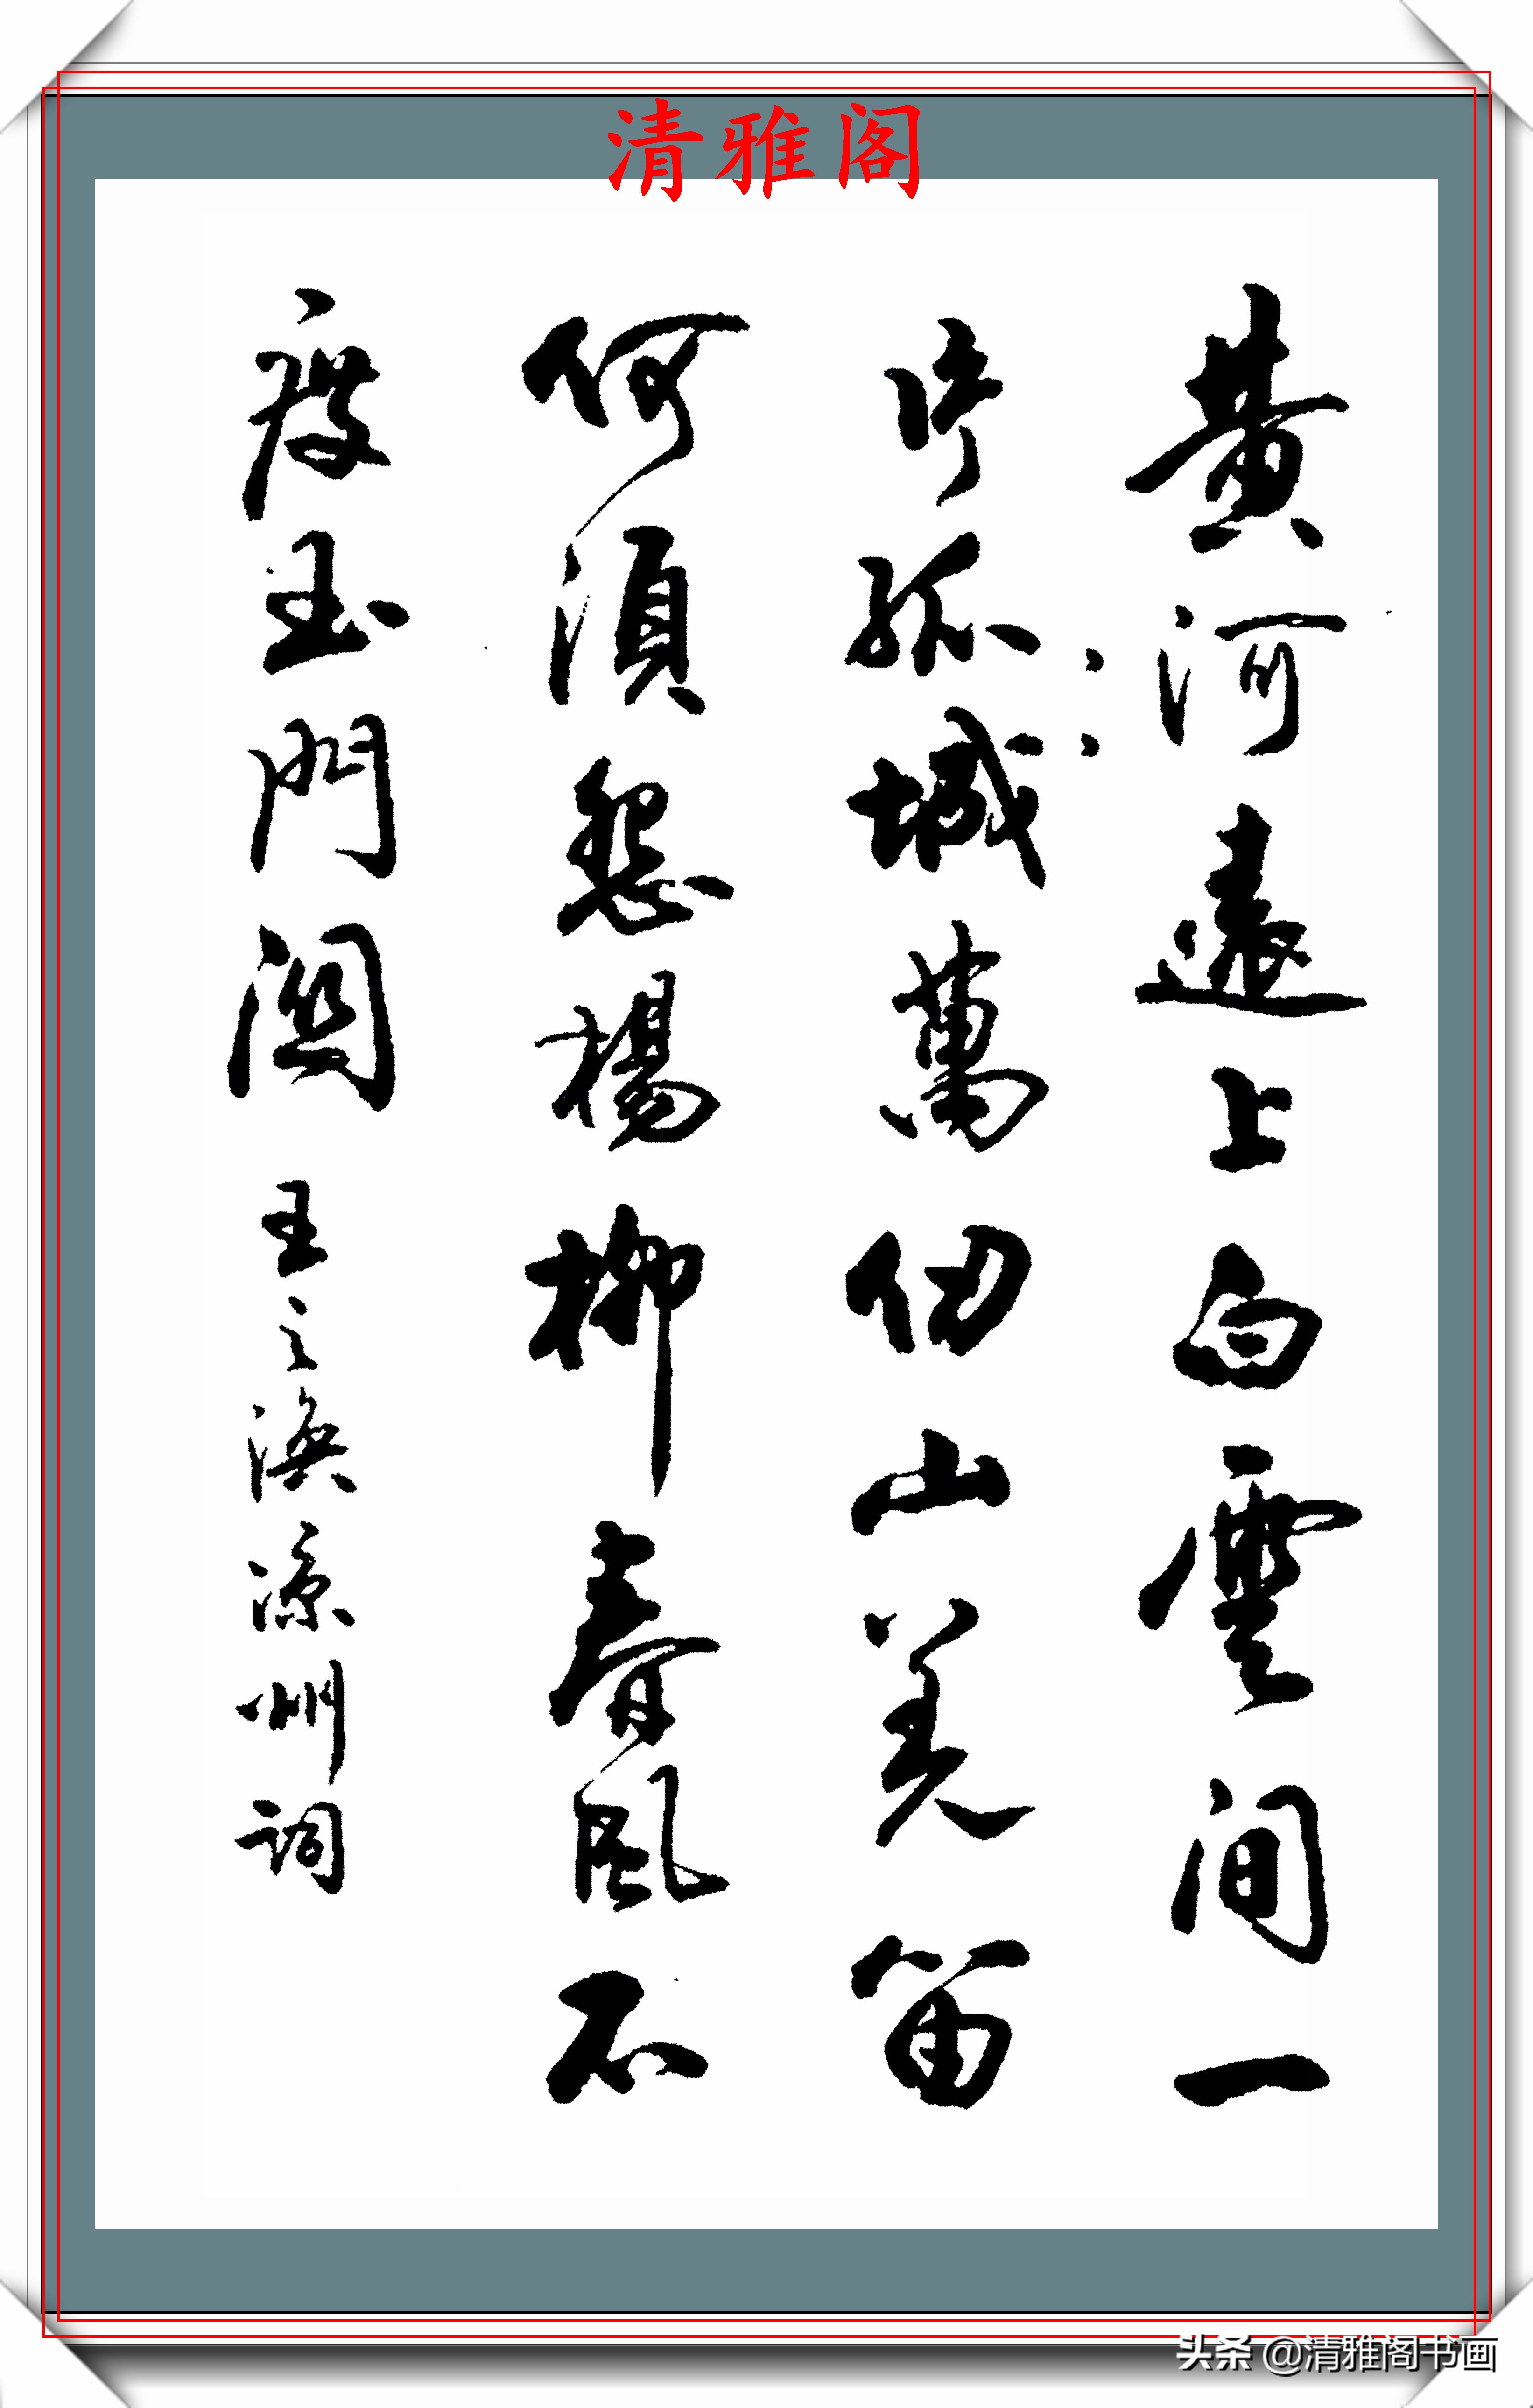 清雅阁
黄河遠上白雲间一
片孤城萬仞山羌笛
何須怨楊柳春風不
度玉門関
王之渙凉州詞
头条 @清雅阁书画